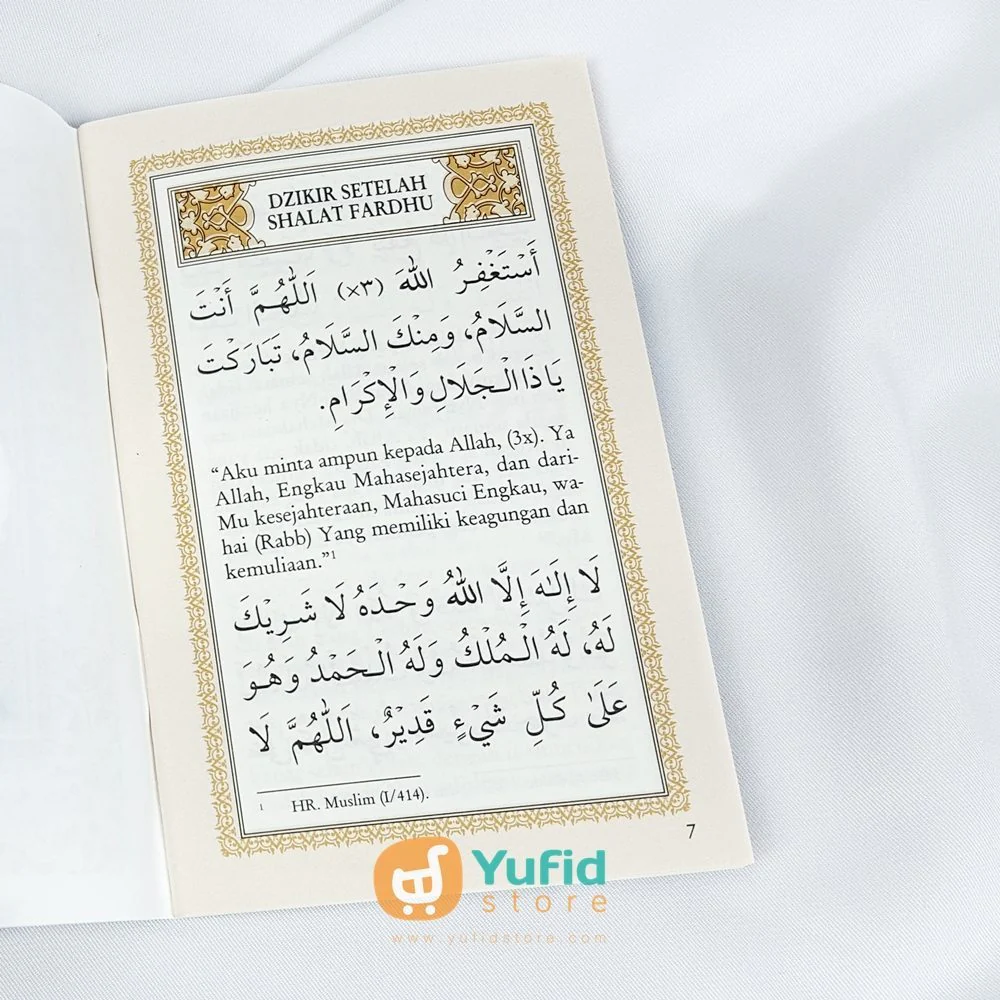 DZIKIR SETELAH
SHALAT FARDHU
أَسْتَغْفِرُ اللهَ (×٣) اَللّٰهُمَّ أَنْتَ
السَّلَامُ، وَمِنْكَ السَّلَامُ، تَبَارَكْتَ
يَاذَا الْجَلَالِ وَالْإِكْرَامِ.
“Aku minta ampun kepada Allah, (3x). Ya
Allah, Engkau Mahasejahtera, dan dari-
Mu kesejahteraan, Mahasuci Engkau, wa-
hai (Rabb) Yang memiliki keagungan dan
kemuliaan.”¹
لَا إِلٰهَ إِلَّا اللهُ وَحْدَهُ لَا شَرِيْكَ
لَهُ، لَهُ الْمُلْكُ وَلَهُ الْحَمْدُ وَهُوَ
عَلَىٰ كُلِّ شَيْءٍ قَدِيْرٌ، اَللّٰهُمَّ لَا
¹ HR. Muslim (I/414).
7
Yufid
store
www.yufidstore.com